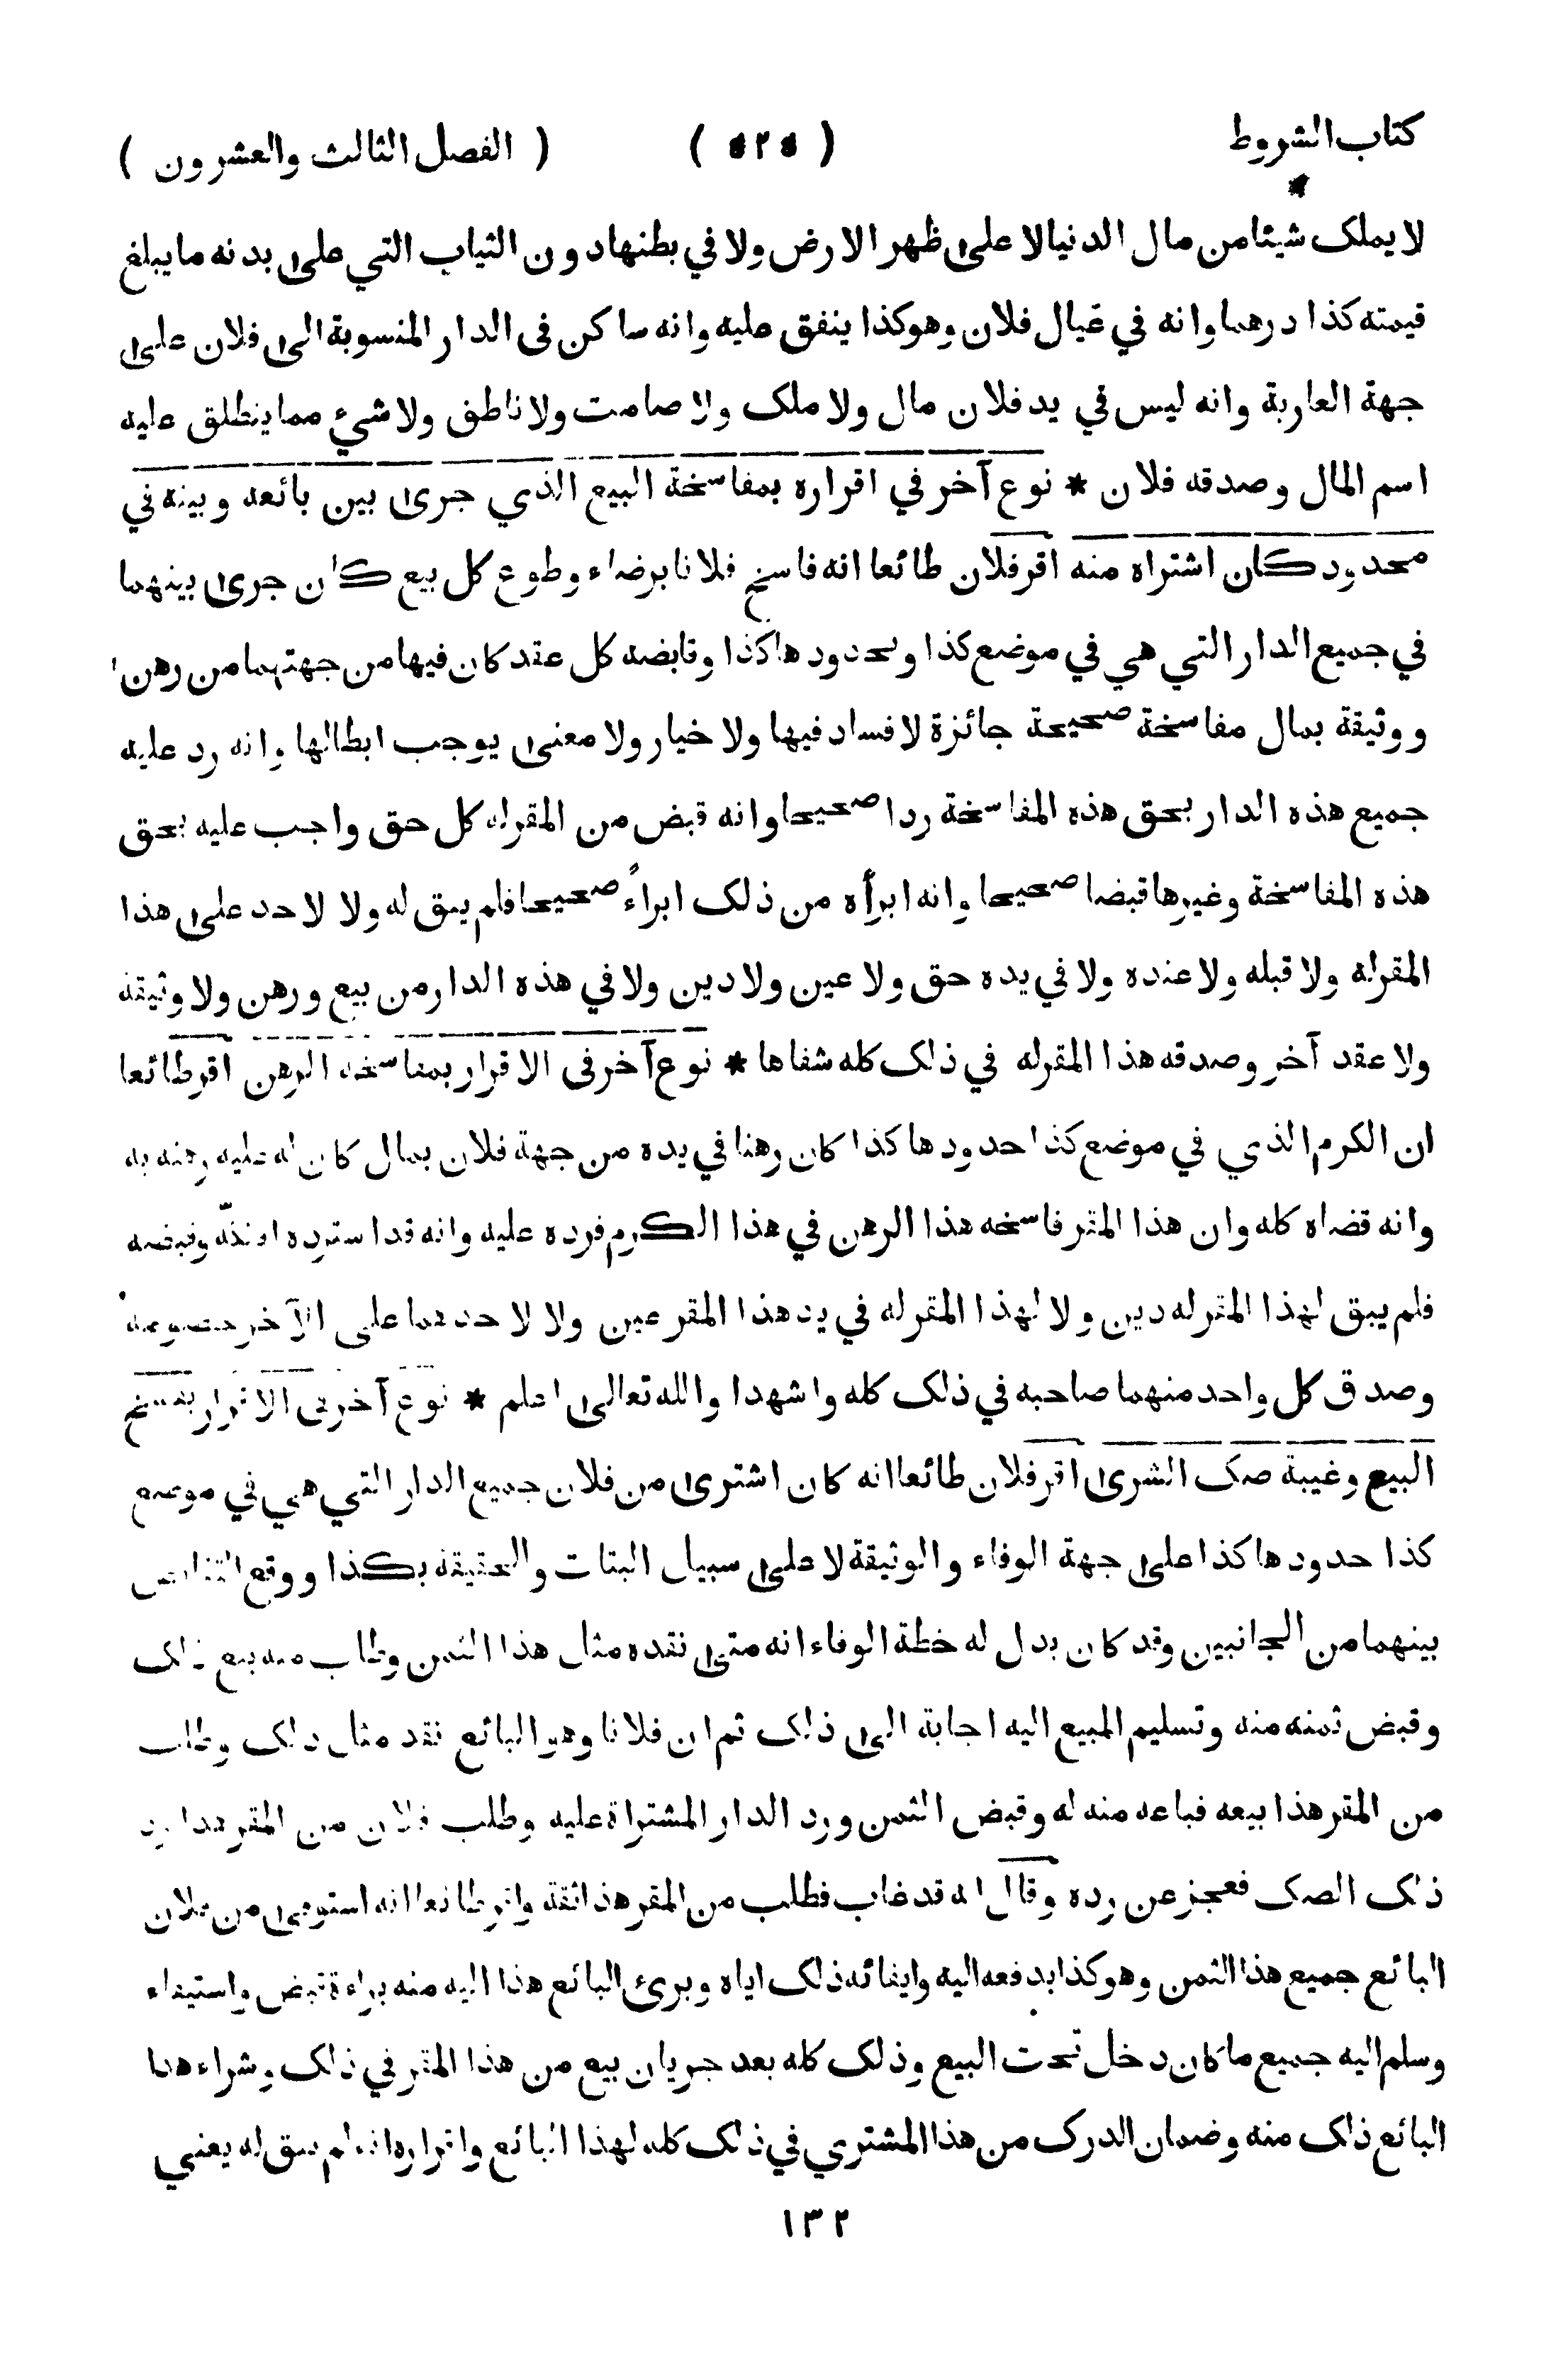 كتاب الشروط ( ٥٢٥ ) ( الفصل الثالث والعشرون )
لا يملك شيئا من مال الدنيا لا على ظهر الارض ولا في بطنها دون الثياب التي على بدنه ما يبلغ
قيمته كذا درهما وانه في عيال فلان وهو كذا ينفق عليه وانه ساكن فى الدار المنسوبة الى فلان على
جهة العارية وانه ليس في يد فلان مال ولا ملك ولا صامت ولا ناطق ولا شيء مما ينطلق عليه
اسم المال وصدقه فلان * نوع آخر في اقراره بمفاسخة البيع الذي جرى بين بائعه وبينه في
محدود كان اشتراه منه اقر فلان طائعا انه فاسخ فلانا برضاء وطوع كل بيع كان جرى بينهما
في جميع الدار التي هي في موضع كذا وحدودها كذا وقابضه كل عقد كان فيها من جهتهما من رهن
ووثيقة بمال مفاسخة صحيحة جائزة لا فساد فيها ولا خيار ولا معنى يوجب ابطالها وانه رد عليه
جميع هذه الدار بحق هذه المفاسخة ردا صحيحا وانه قبض من المقر له كل حق واجب عليه بحق
هذه المفاسخة وغيرها قبضا صحيحا وانه ابرأه من ذلك ابراءً صحيحا فلم يبق له ولا لاحد على هذا
المقر له ولا قبله ولا عنده ولا في يده حق ولا عين ولا دين ولا في هذه الدار من بيع ورهن ولا وثيقة
ولا عقد آخر وصدقه هذا المقر له في ذلك كله شفاها * نوع آخر فى الاقرار بمفاسخة الرهن اقر طائعا
ان الكرم الذي في موضع كذا حدودها كذا كان رهنا في يده من جهة فلان بمال كان له عليه رهنه به
وانه قضاه كله وان هذا المقر فاسخه هذا الرهن في هذا الكرم فرده عليه وانه قد استرده وقبضه
فلم يبق لهذا المقر له دين ولا لهذا المقر له في يد هذا المقر عين ولا لاحدهما على الآخر خصومة
وصدق كل واحد منهما صاحبه في ذلك كله واشهدا والله تعالى اعلم * نوع آخر فى الاقرار بفسخ
البيع وغيبة صك الشرى اقر فلان طائعا انه كان اشترى من فلان جميع الدار التي هي في موضع
كذا حدودها كذا على جهة الوفاء والوثيقة لا على سبيل البتات والحقيقة بكذا ووقع التقابض
بينهما من الجانبين وقد كان بدل له خطة الوفاء انه متى نقده مثل هذا الثمن وطلب منه بيع ذلك
وقبض ثمنه منه وتسليم المبيع اليه اجابة الى ذلك ثم ان فلانا وهو البائع نقد مثل ذلك وطلب
من المقر هذا بيعه فباعه منه له وقبض الثمن ورد الدار المشتراة عليه وطلب فلان من المقر هذا رد
ذلك الصك فعجز عن رده وقال انه قد غاب فطلب من المقر هذا ثقة واقر طائعا انه استوفى من فلان
البائع جميع هذا الثمن وهو كذا بدفعه اليه وايفائه ذلك اياه وبرئ البائع هذا اليه منه براءة قبض واستيفاء
وسلم اليه جميع ما كان دخل تحت البيع وذلك كله بعد جريان بيع من هذا المقر في ذلك وشراء هذا
البائع ذلك منه وضمان الدرك من هذا المشتري في ذلك كله لهذا البائع واقراره انه لم يبق له يعني
١٣٢